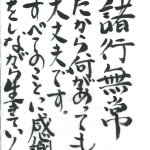 諸行無常
だから何があっても
大丈夫です。
すべてのことに感謝
をしながら生きてい